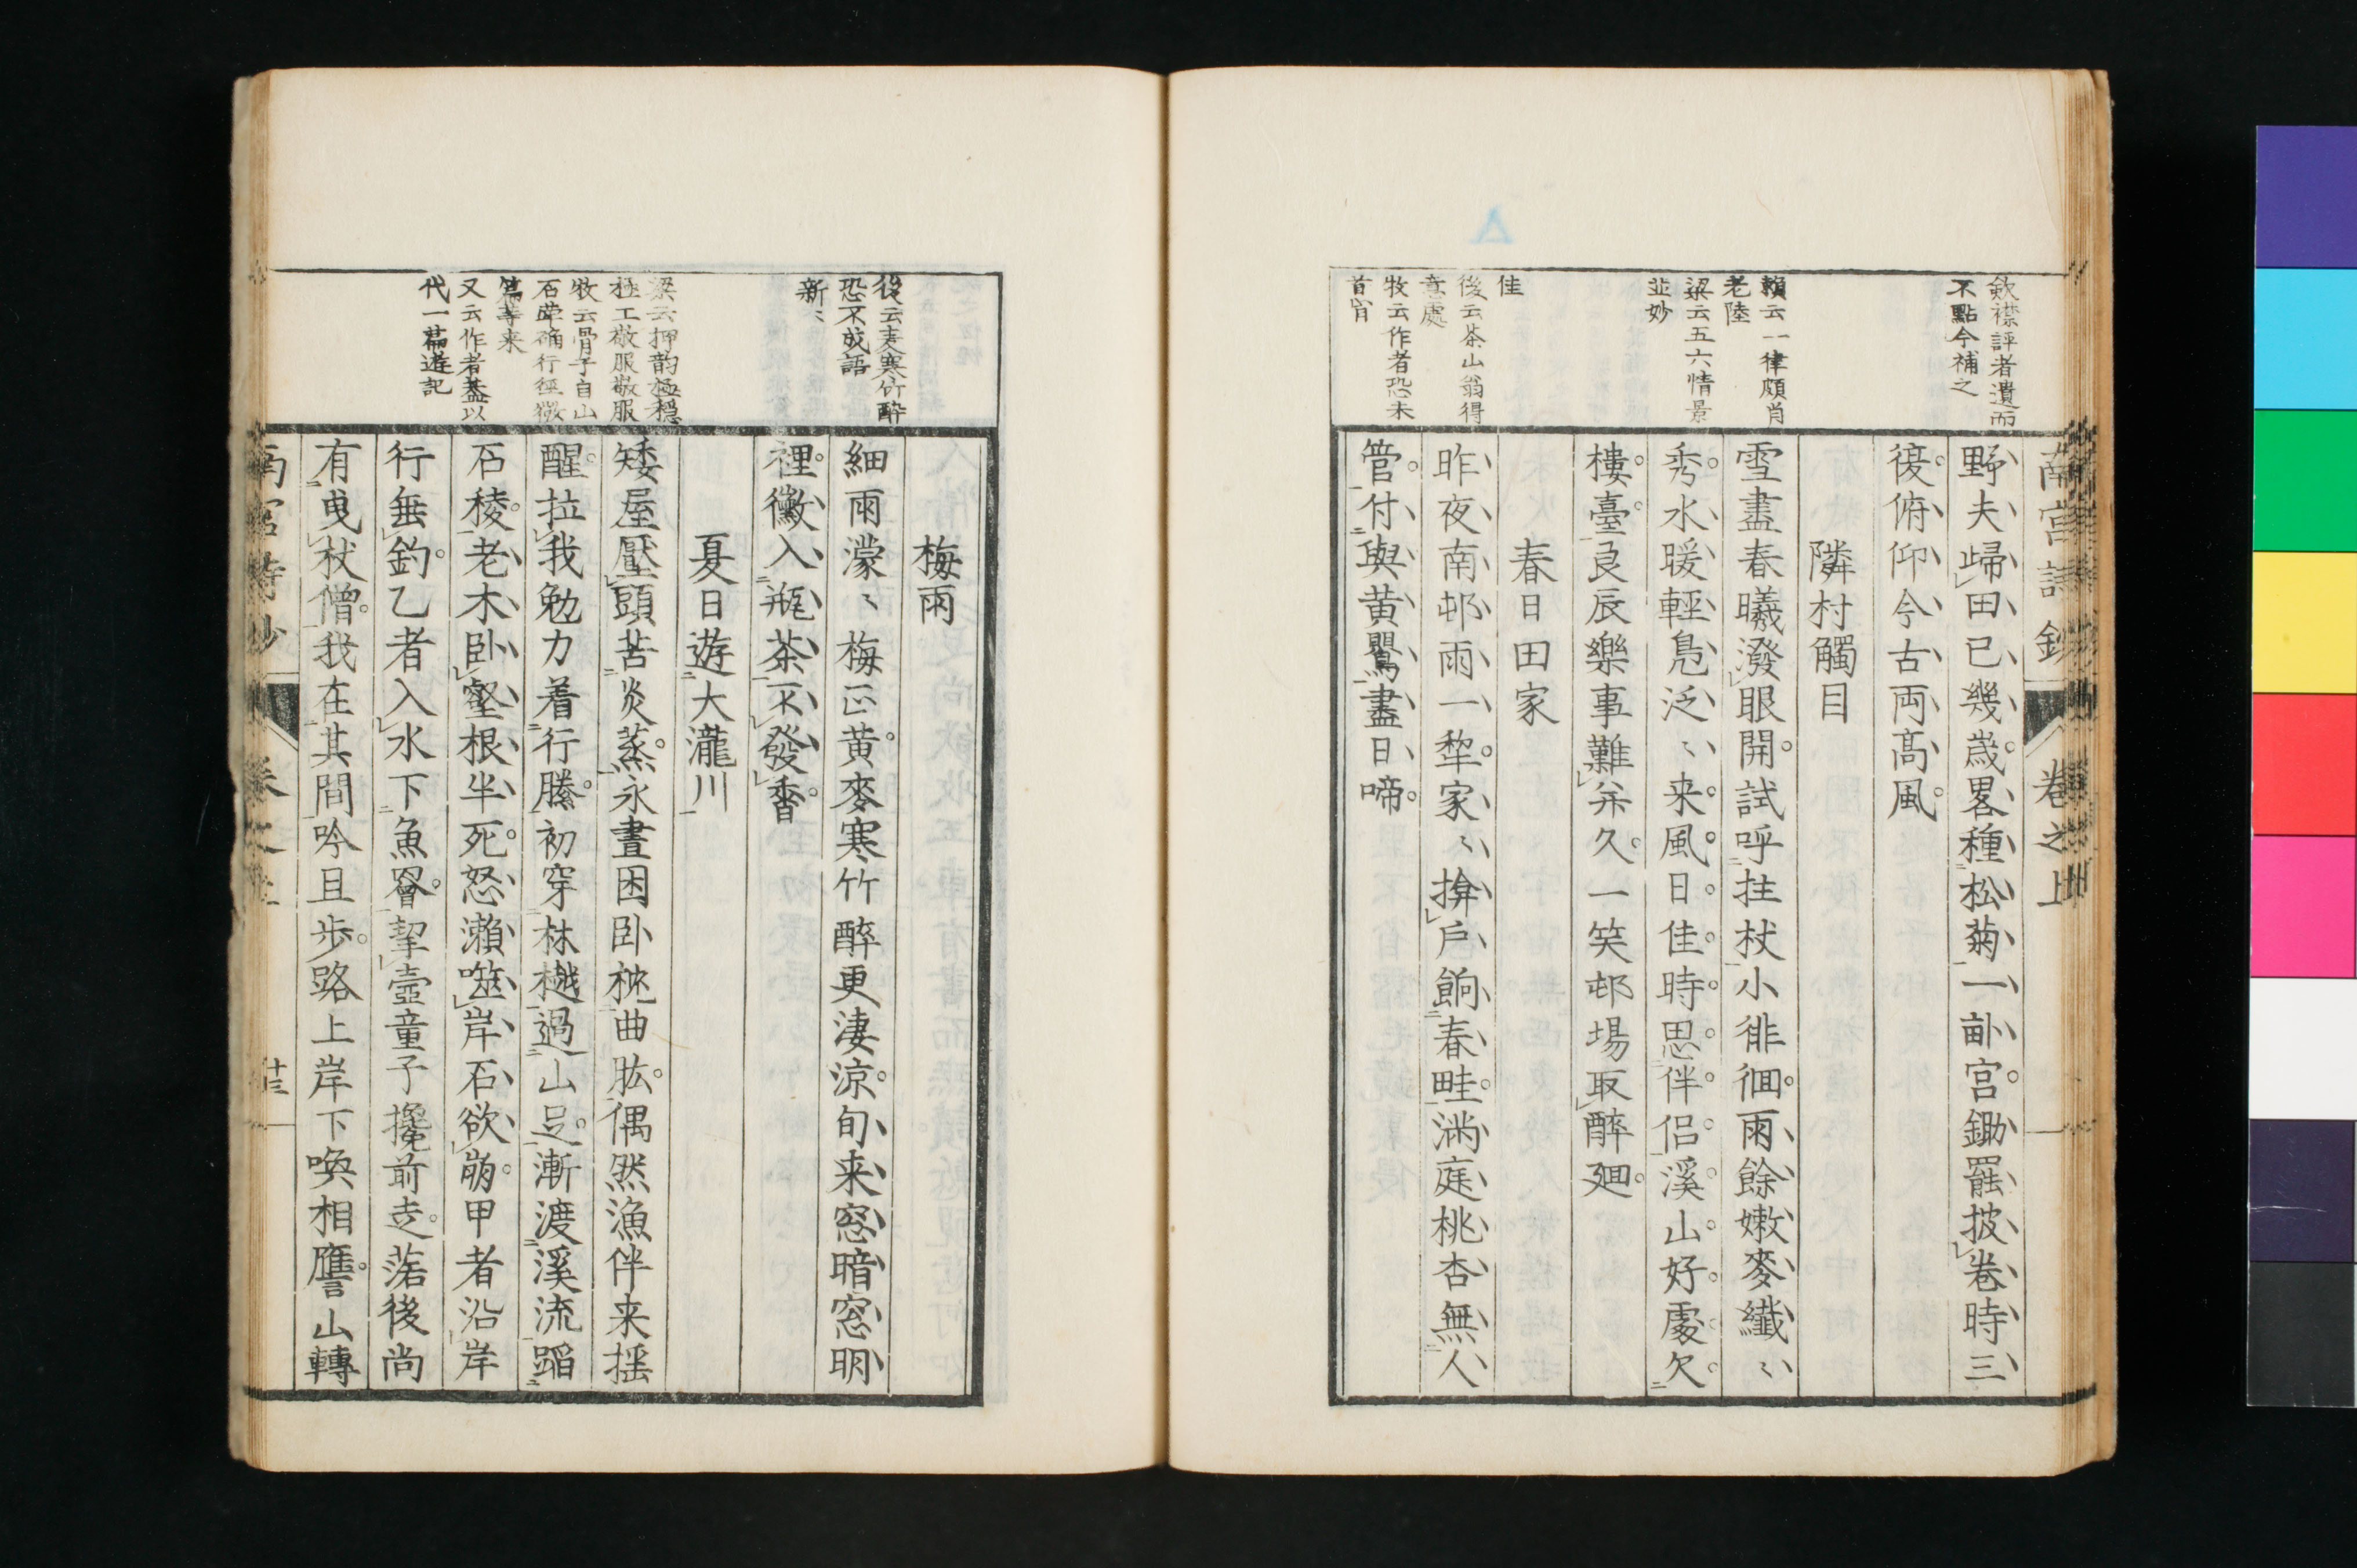 南宮詩鈔
卷之上
欽襟評者遺而
不點今補之
野夫歸田已幾歳畧種松菊一畝宮鋤罷披卷時三
復俯仰今古両髙風
隣村觸目
頼云一律頗肖
老陸
梁云五六情景
並妙
雪盡春曦潑眼開試呼拄杖小徘徊雨餘嫩麥纖〻
秀水暖輕鳬泛〻来風日佳時思伴侣溪山好處欠
樓臺良辰樂事難并久一笑邨場取醉廻
春日田家
佳
後云茶山翁得
意處
牧云作者恐未
首肯
昨夜南邨雨一犂家〻揜户餉春畦満庭桃杏無人
管付與黄鸎盡日啼
梅雨
後云麦寒竹酔
恐不成語
新〻
細雨濛〻梅正黄麥寒竹醉更淒涼旬来窓暗窓明
裡黴入瓶茶不發香
夏日遊大瀧川
梁云押韵極穏
極工敬服敬服
牧云骨子自山
石犖确行徑微
篇等来
又云作者葢以
代一篇遊記
矮屋壓頭苦炎蒸永晝困卧枕曲肱偶然漁伴来揺
醒拉我勉力着行縢初穿林樾過山足漸渡溪流蹈
石稜老木卧壑根半死怒瀨噬岸石欲崩甲者沿岸
行垂釣乙者入水下魚罾挈壷童子攙前走落後尚
有曳杖僧我在其間吟且歩路上岸下喚相譍山轉
南宮詩鈔
卷之上
廿三